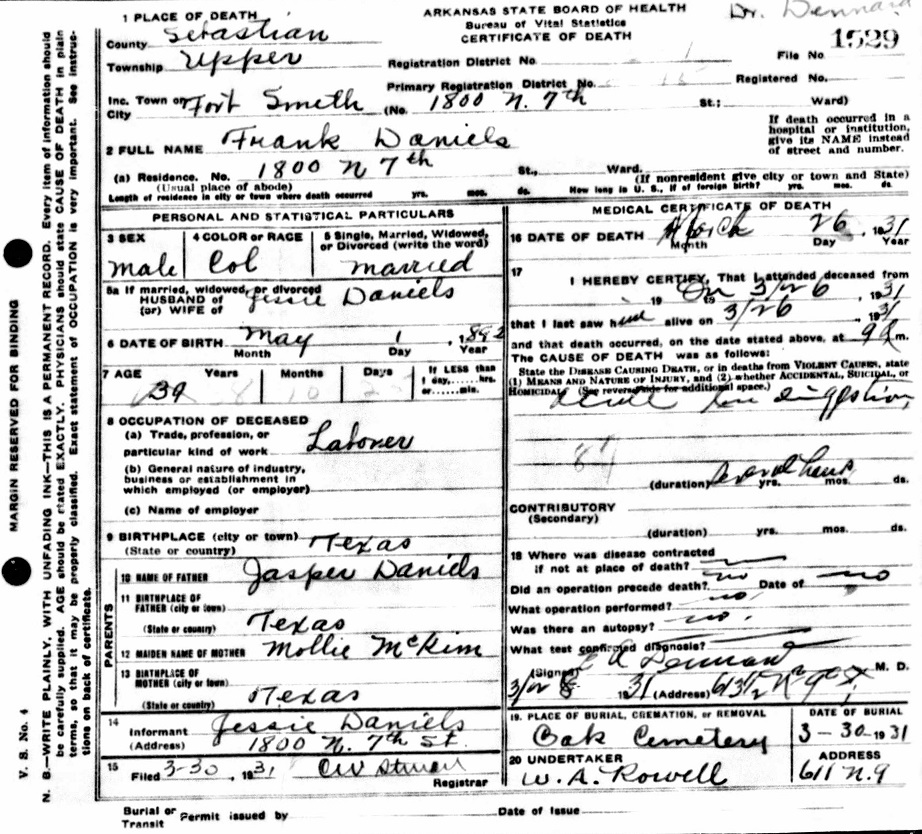 Dr. Dennard
1 PLACE OF DEATH
ARKANSAS STATE BOARD OF HEALTH
Bureau of Vital Statistics
CERTIFICATE OF DEATH
1529
County Sebastian
Township Upper
Registration District No. 1
File No.
Primary Registration District No.
Registered No.
Inc. Town or City Fort Smith (No. 1800 N. 7th St.; Ward)
If death occurred in a hospital or institution, give its NAME instead of street and number.
2 FULL NAME Frank Daniels
(a) Residence. No. 1800 N 7th St., Ward.
(Usual place of abode) (If nonresident give city or town and State)
Length of residence in city or town where death occurred yrs. mos. ds. How long in U. S., if of foreign birth? yrs. mos. ds.
PERSONAL AND STATISTICAL PARTICULARS
3 SEX Male
4 COLOR OR RACE Col
5 Single, Married, Widowed, or Divorced (write the word) married
5a If married, widowed, or divorced
HUSBAND of
(or) WIFE of Jessie Daniels
6 DATE OF BIRTH May 1, 1892
Month Day Year
7 AGE Years Months Days If LESS than 1 day,....hrs. or....min.
39
8 OCCUPATION OF DECEASED
(a) Trade, profession, or particular kind of work Laborer
(b) General nature of industry, business or establishment in which employed (or employer)
(c) Name of employer
9 BIRTHPLACE (city or town) Texas
(State or country)
PARENTS
10 NAME OF FATHER Jasper Daniels
11 BIRTHPLACE OF FATHER (city or town)
(State or country) Texas
12 MAIDEN NAME OF MOTHER Mollie McKim
13 BIRTHPLACE OF MOTHER (city or town)
(State or country) Texas
14 Informant Jessie Daniels
(Address) 1800 N. 7th St.
15 Filed 3-30, 1931
Registrar
MEDICAL CERTIFICATE OF DEATH
16 DATE OF DEATH March 26, 1931
Month Day Year
17 I HEREBY CERTIFY, That I attended deceased from
19 to On 3/26, 1931
that I last saw him alive on 3/26, 1931
and that death occurred, on the date stated above, at 9 m.
The CAUSE OF DEATH was as follows:
State the DISEASE CAUSING DEATH, or in deaths from VIOLENT CAUSES, state (1) MEANS AND NATURE OF INJURY, and (2) whether ACCIDENTAL, SUICIDAL, or HOMICIDAL (See reverse side for additional space.)
Acute Indiggestion
(duration) Several hours yrs. mos. ds.
CONTRIBUTORY
(Secondary)
(duration) yrs. mos. ds.
18 Where was disease contracted
if not at place of death?
Did an operation precede death? no Date of no
What operation performed? no
Was there an autopsy? no.
What test confirmed diagnosis?
(Signed) Dennard M. D.
3/28 1931 (Address) 613½ N 9th St.
19. PLACE OF BURIAL, CREMATION, or REMOVAL
Oak Cemetery
DATE OF BURIAL
3-30-1931
20 UNDERTAKER
W. A. Rowell
ADDRESS
611 N. 9
Burial or Transit Permit issued by
Date of Issue
V. S. No. 4
MARGIN RESERVED FOR BINDING
N. B.—WRITE PLAINLY, WITH UNFADING INK—THIS IS A PERMANENT RECORD. Every item of information should
be carefully supplied. AGE should be stated EXACTLY. PHYSICIANS should state CAUSE OF DEATH in plain
terms, so that it may be properly classified. Exact statement of OCCUPATION is very important. See instruc-
tions on back of certificate.